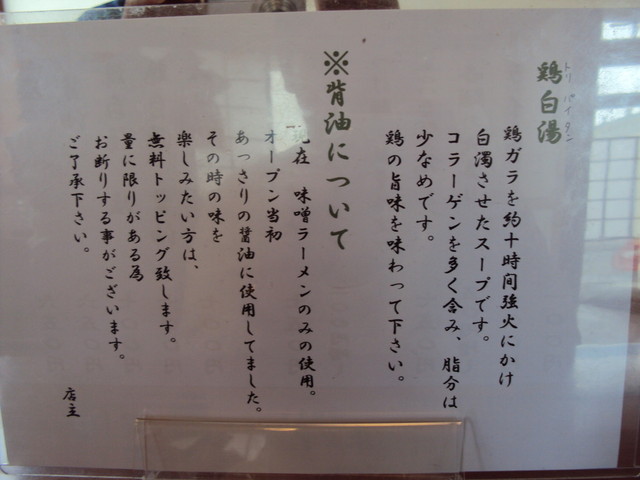 鶏白湯
トリ パイ タン
鶏ガラを約十時間強火にかけ
白濁させたスープです。
コラーゲンを多く含み、脂分は
少なめです。
鶏の旨味を味わって下さい。
※背油について
現在 味噌ラーメンのみの使用。
オープン当初
あっさりの醤油に使用してました。
その時の味を
楽しみたい方は、
無料トッピング致します。
量に限りがある為
お断りする事がございます。
ご了承下さい。
店主